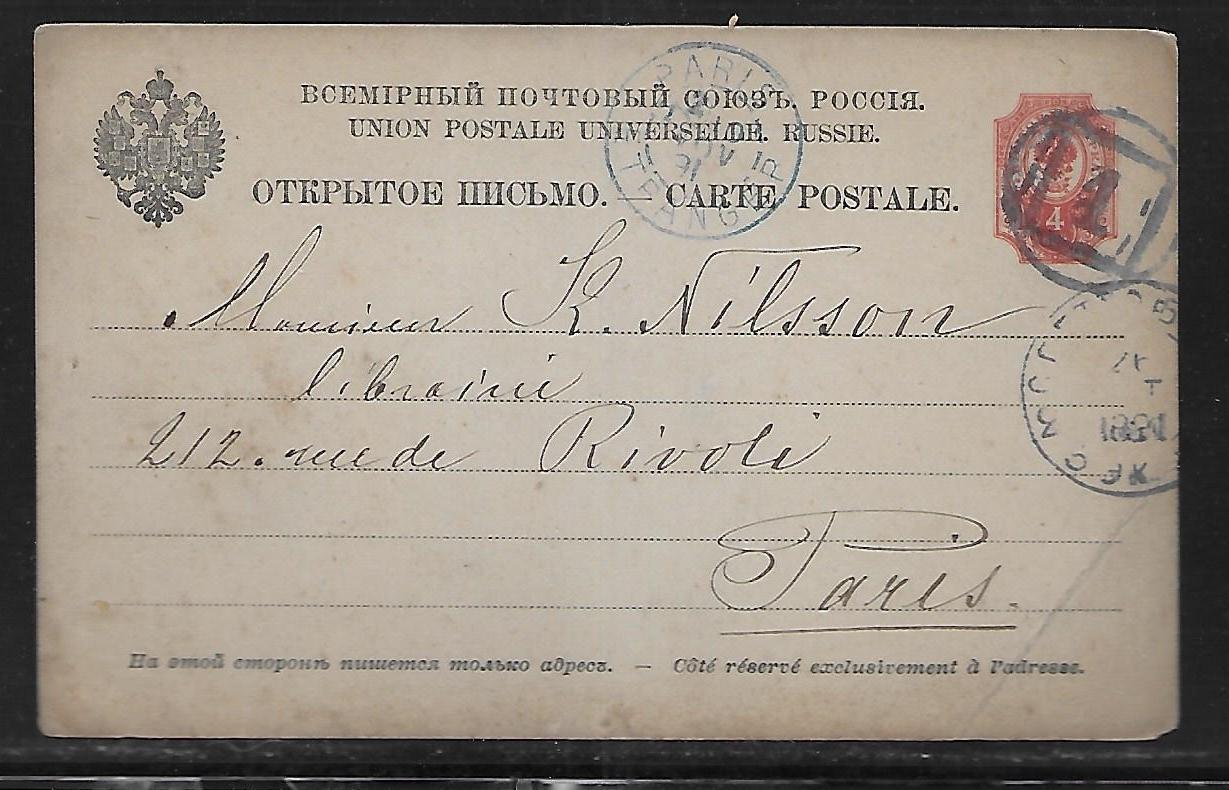 ВСЕМІРНЫЙ ПОЧТОВЫЙ СОЮЗЪ. РОССІЯ.
UNION POSTALE UNIVERSELLE. RUSSIE.
ОТКРЫТОЕ ПИСЬМО. — CARTE POSTALE.
PARIS
NOV
91
ETRANGER
4
1
1891
Monsieur K. Nilsson
librairie
212. rue de Rivoli
Paris.
На этой сторонѣ пишется только адресъ. — Côté réservé exclusivement à l'adresse.